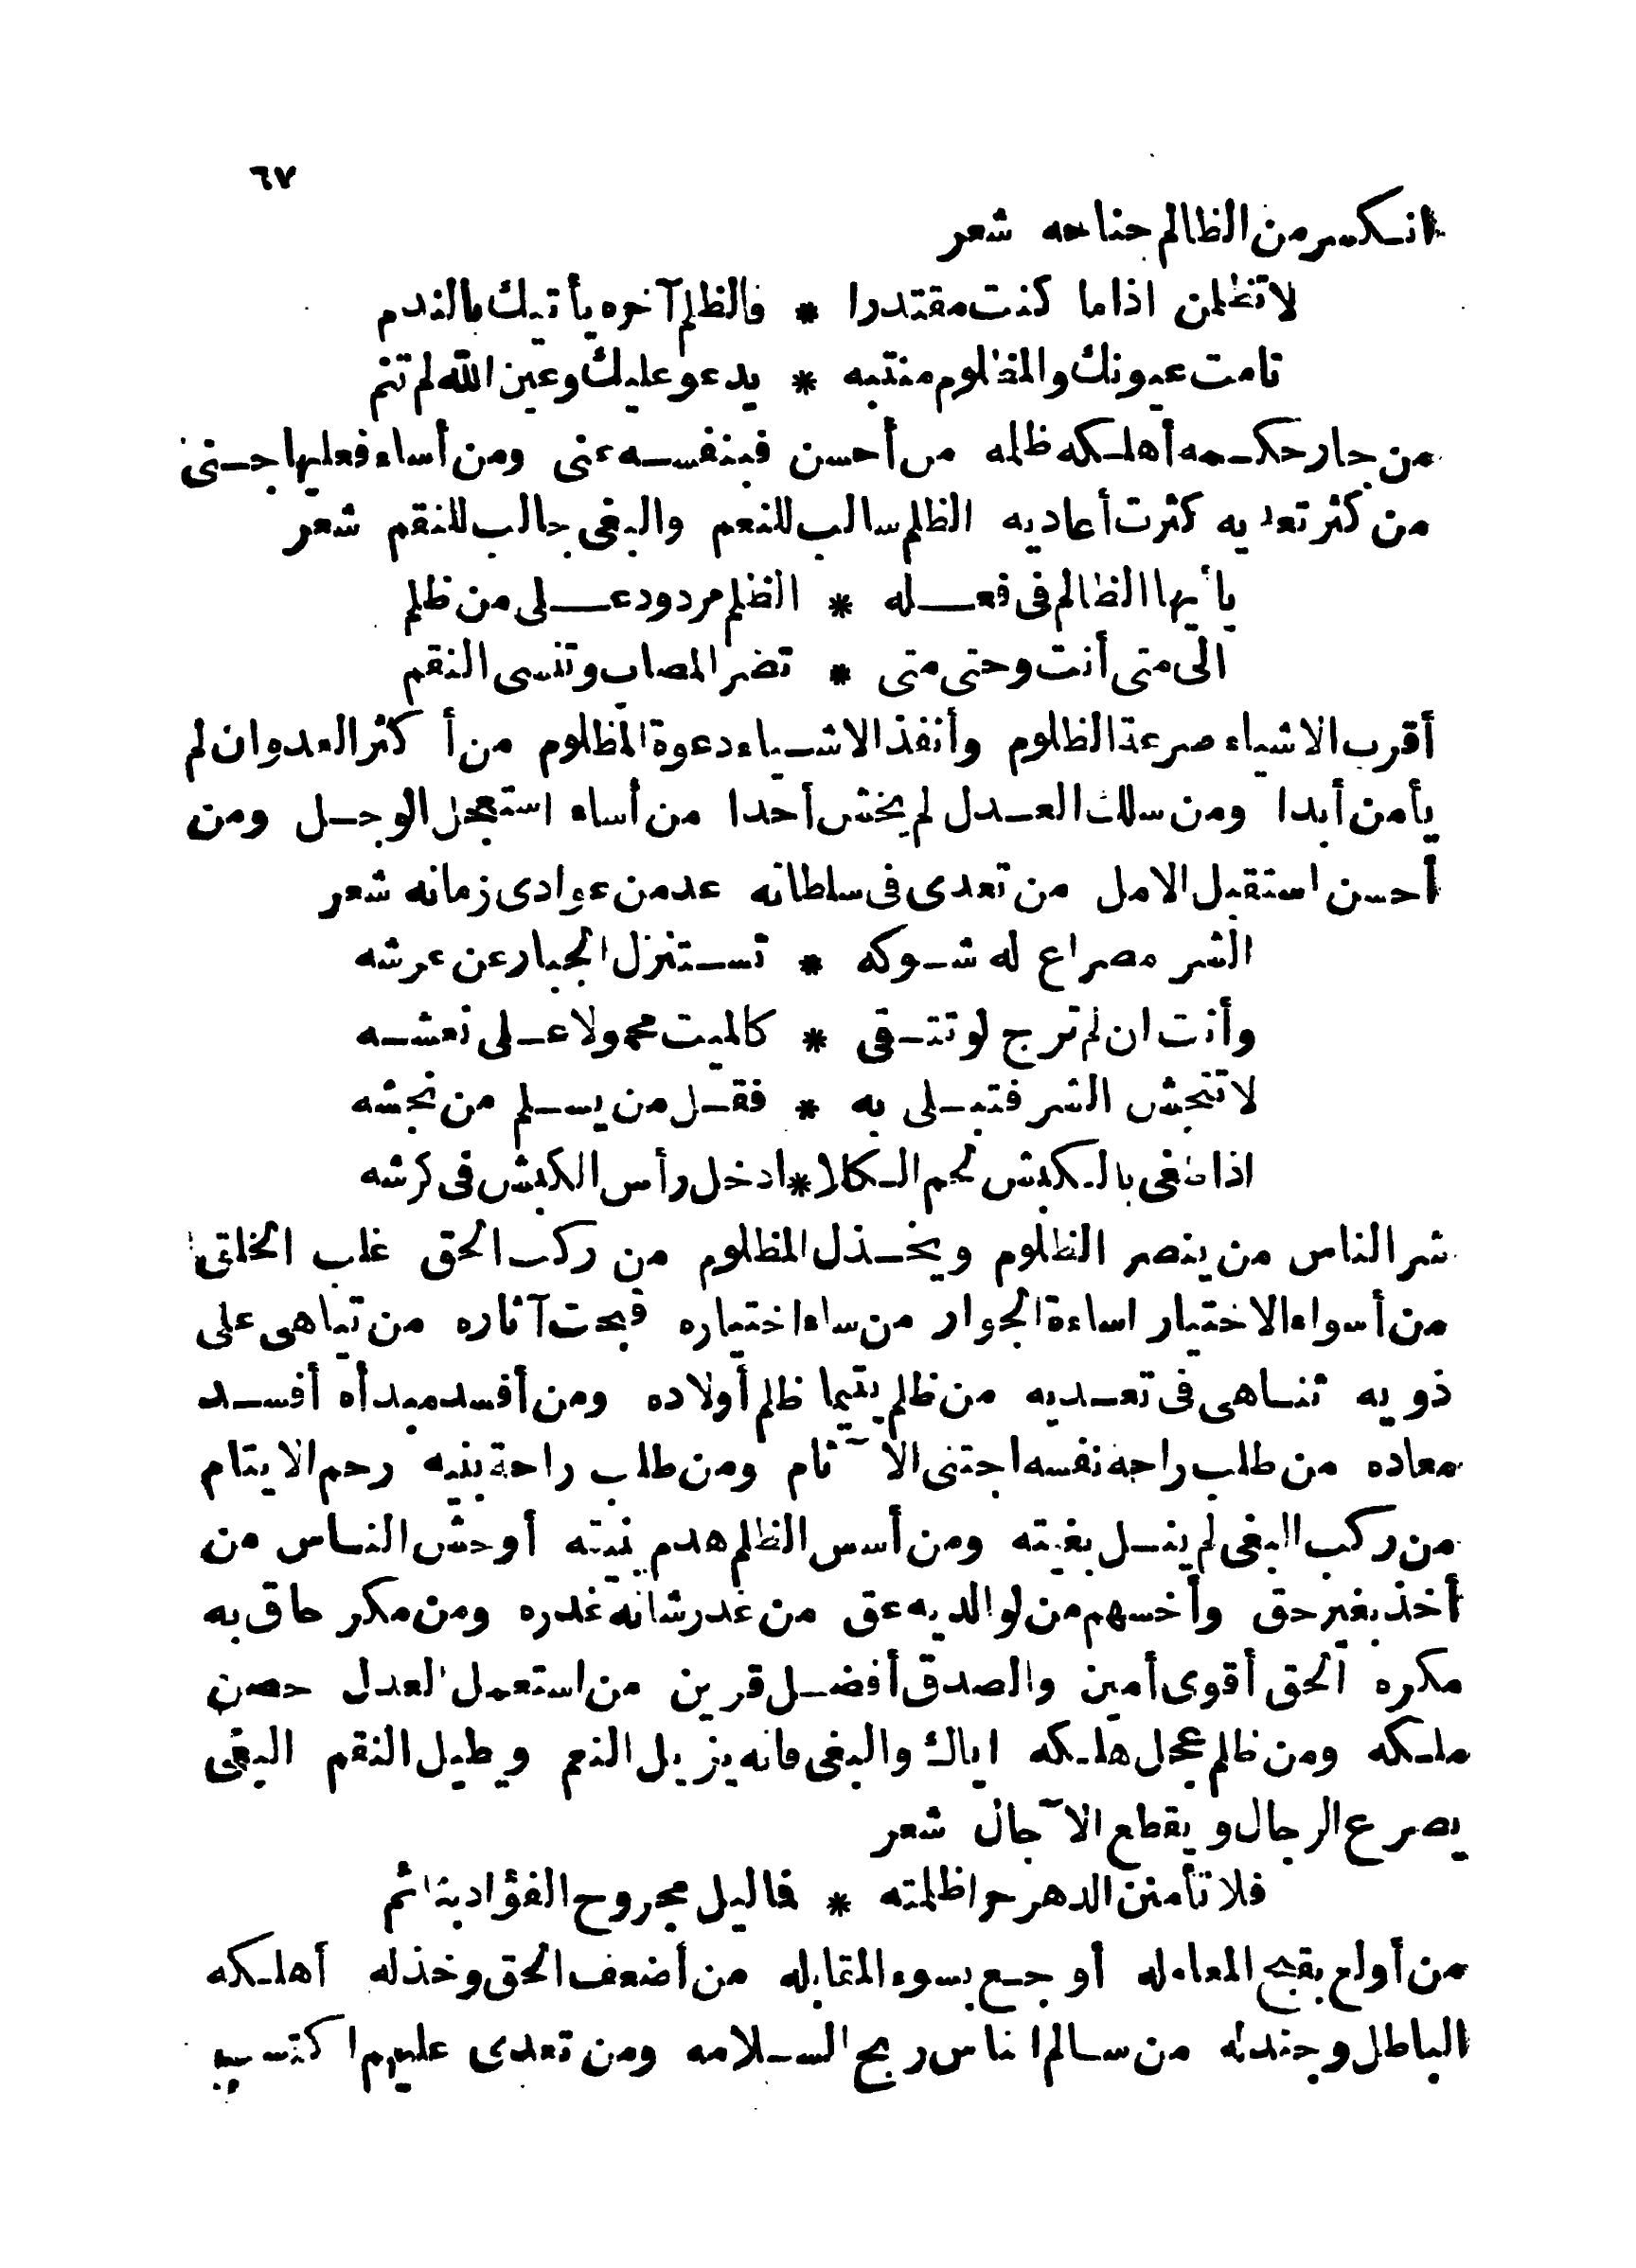 ٦٧
انكسر من الظالم جناحه شعر
لاتظلمن اذاما كنت مقتدرا * فالظلم آخره يأتيك بالندم
نامت عيونك والمظلوم منتبه * يدعو عليك وعين الله لم تنم
من جار حكمه أهلكه ظلمه من أحسن فبنفسه عنى ومن أساء فعليها جنى
من كثر تعديه كثرت أعاديه الظلم سالب للنعم والبغى جالب للنقم شعر
يا أيها الظالم فى فعله * الظلم مردود على من ظلم
الى متى أنت وحتى متى * تضر المصاب وتنسى النقم
أقرب الاشياء صرعة الظلوم وأنفذ الاشياء دعوة المظلوم من أكثر العدوان لم
يأمن أبدا ومن سلك العدل لم يخش أحدا من أساء استعجل الوجل ومن
أحسن استقبل الامل من تعدى فى سلطانه عد من عوادى زمانه شعر
الشر مصراع له شوكه * تستنزل الجبار عن عرشه
وأنت ان لم ترج لو تتقى * كالميت محمولا على نعشه
لا تنجش الشر فتبلى به * فقل من يسلم من نجشه
اذا طغى بالكبش لحم الكلا * ادخل رأس الكبش فى كرشه
شر الناس من ينصر الظلوم ويخذل المظلوم من ركب الحق غلب الخلق
من أسواء الاختيار اساءة الجوار من ساء اختياره قبحت آثاره من تباهى على
ذويه تناهى فى تعديه من ظلم يتيما ظلم أولاده ومن أفسد مبدأه أفسد
معاده من طلب راحة نفسه اجتنى الآثام ومن طلب راحة بنيه رحم الايتام
من ركب البغى لم ينل بغيته ومن أسس الظلم هدم بنيته أوحش الناس من
أخذ بغير حق وأخسهم من لوالديه عق من غدر شانه غدره ومن مكر حاق به
مكره الحق أقوى أمين والصدق أفضل قرين من استعمل العدل حصن
ملكه ومن ظلم عجل هلكه اياك والبغى فانه يزيل النعم ويطيل النقم البغى
يصرع الرجال ويقطع الآجال شعر
فلا تأمنن الدهر حرا ظلمته * فماليل مجروح الفؤاد بنائم
من أولع بقبح المعامله أوجع بسوء المقابله من أضعف الحق وخذله أهلكه
الباطل وجندله من سالم الناس ربح السلامه ومن تعدى عليهم اكتسب